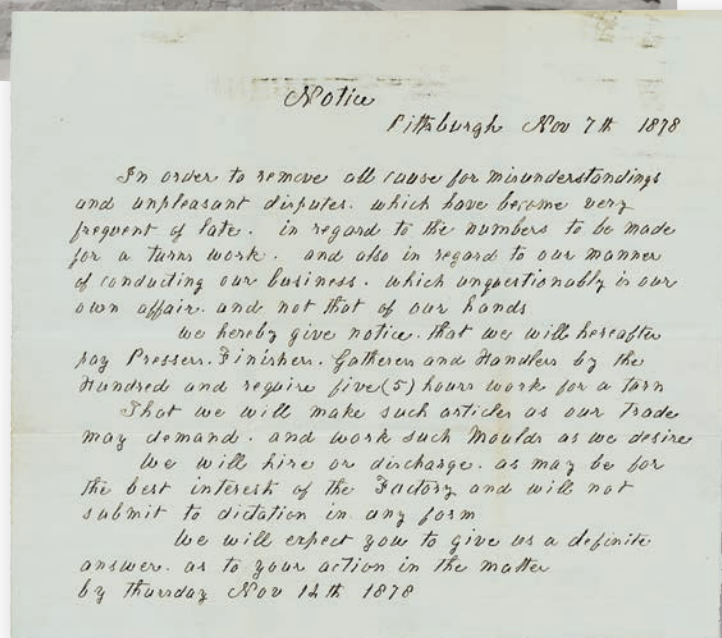 Notice
Pittsburgh Nov 7th 1878
In order to remove all cause for misunderstandings
and unpleasant disputes. which have become very
frequent of late. in regard to the numbers to be made
for a turns work. and also in regard to our manner
of conducting our business. which unquestionably is our
own affair. and not that of our hands
we hereby give notice. that we will hereafter
pay Pressers. Finishers. Gatherers and Handlers by the
Hundred and require five (5) hours work for a turn
That we will make such articles as our Trade
may demand. and work such Moulds as we desire
We will hire or discharge. as may be for
the best interest of the Factory and will not
submit to dictation in any form
We will expect you to give us a definite
answer. as to your action in the matter
by Thursday Nov 14th 1878